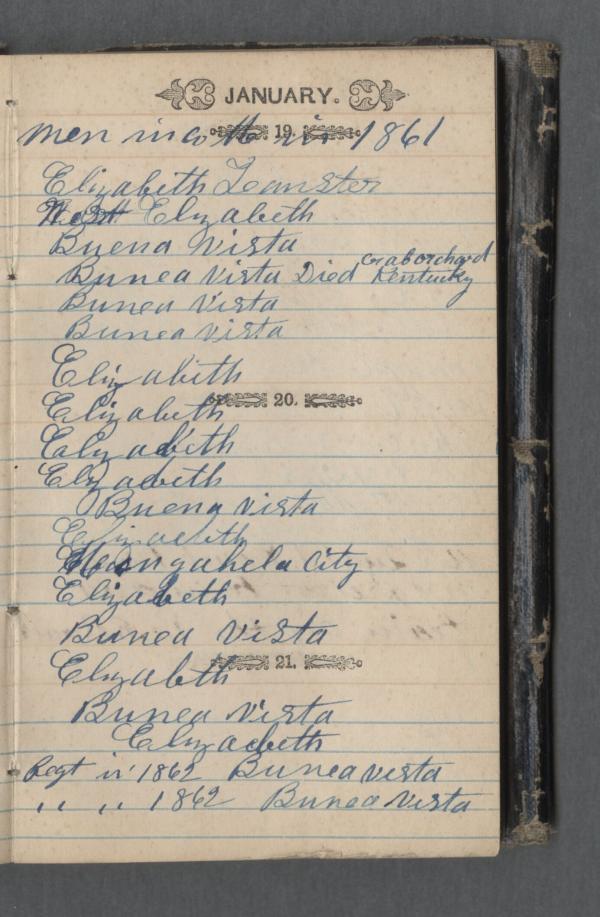 JANUARY.
19.
men in co in 1861
Elizabeth
West Elizabeth
Buena Vista
Bunea Vista Died craborchard Kentucky
Bunea Vista
Bunea vista
Elizabeth
20.
Elizabeth
Elizabeth
Elizabeth
Buena vista
Elizabeth
Monongahela City
Elizabeth
Bunea Vista
21.
Elizabeth
Bunea Vista
Elizabeth
in 1862 Bunea vista
,, ,, 1862 Bunea Vista